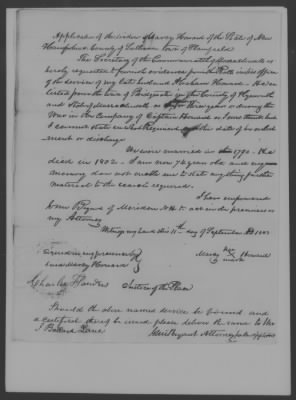 Application of the widow Mercy Howard of the State of New
Hampshire County of Sullivan Town of Plainfield
The Secretary of the Commonwealth of Massachusetts is
hereby requested to furnish evidence from the Rolls in his office
of the service of my late husband Abraham Howard - He en
listed from the town of Bridgewater in the County of Plymouth
and State of Massachusetts, three years or during the
War in the Company of Captain as I now think but
I cannot state the Regiment the date of his enlist
ment or discharge
We were married in 1790 - He
died in 1802 - I am now 74 years old and my
memory does not enable me to state anything further
material to the search required.
I have empowered
Bryant of Meriden N H to act in the premises as
my Attorney
Witness my hand this 11th day of September
Signed in my presence
Mercy Howard
her
mark
Charles Flanders Justice of the Peace
Should the above named service be found and
a certificate thereof be issued please deliver the same to Mr
J Ballard Lane
Bryant Attorney for applicant